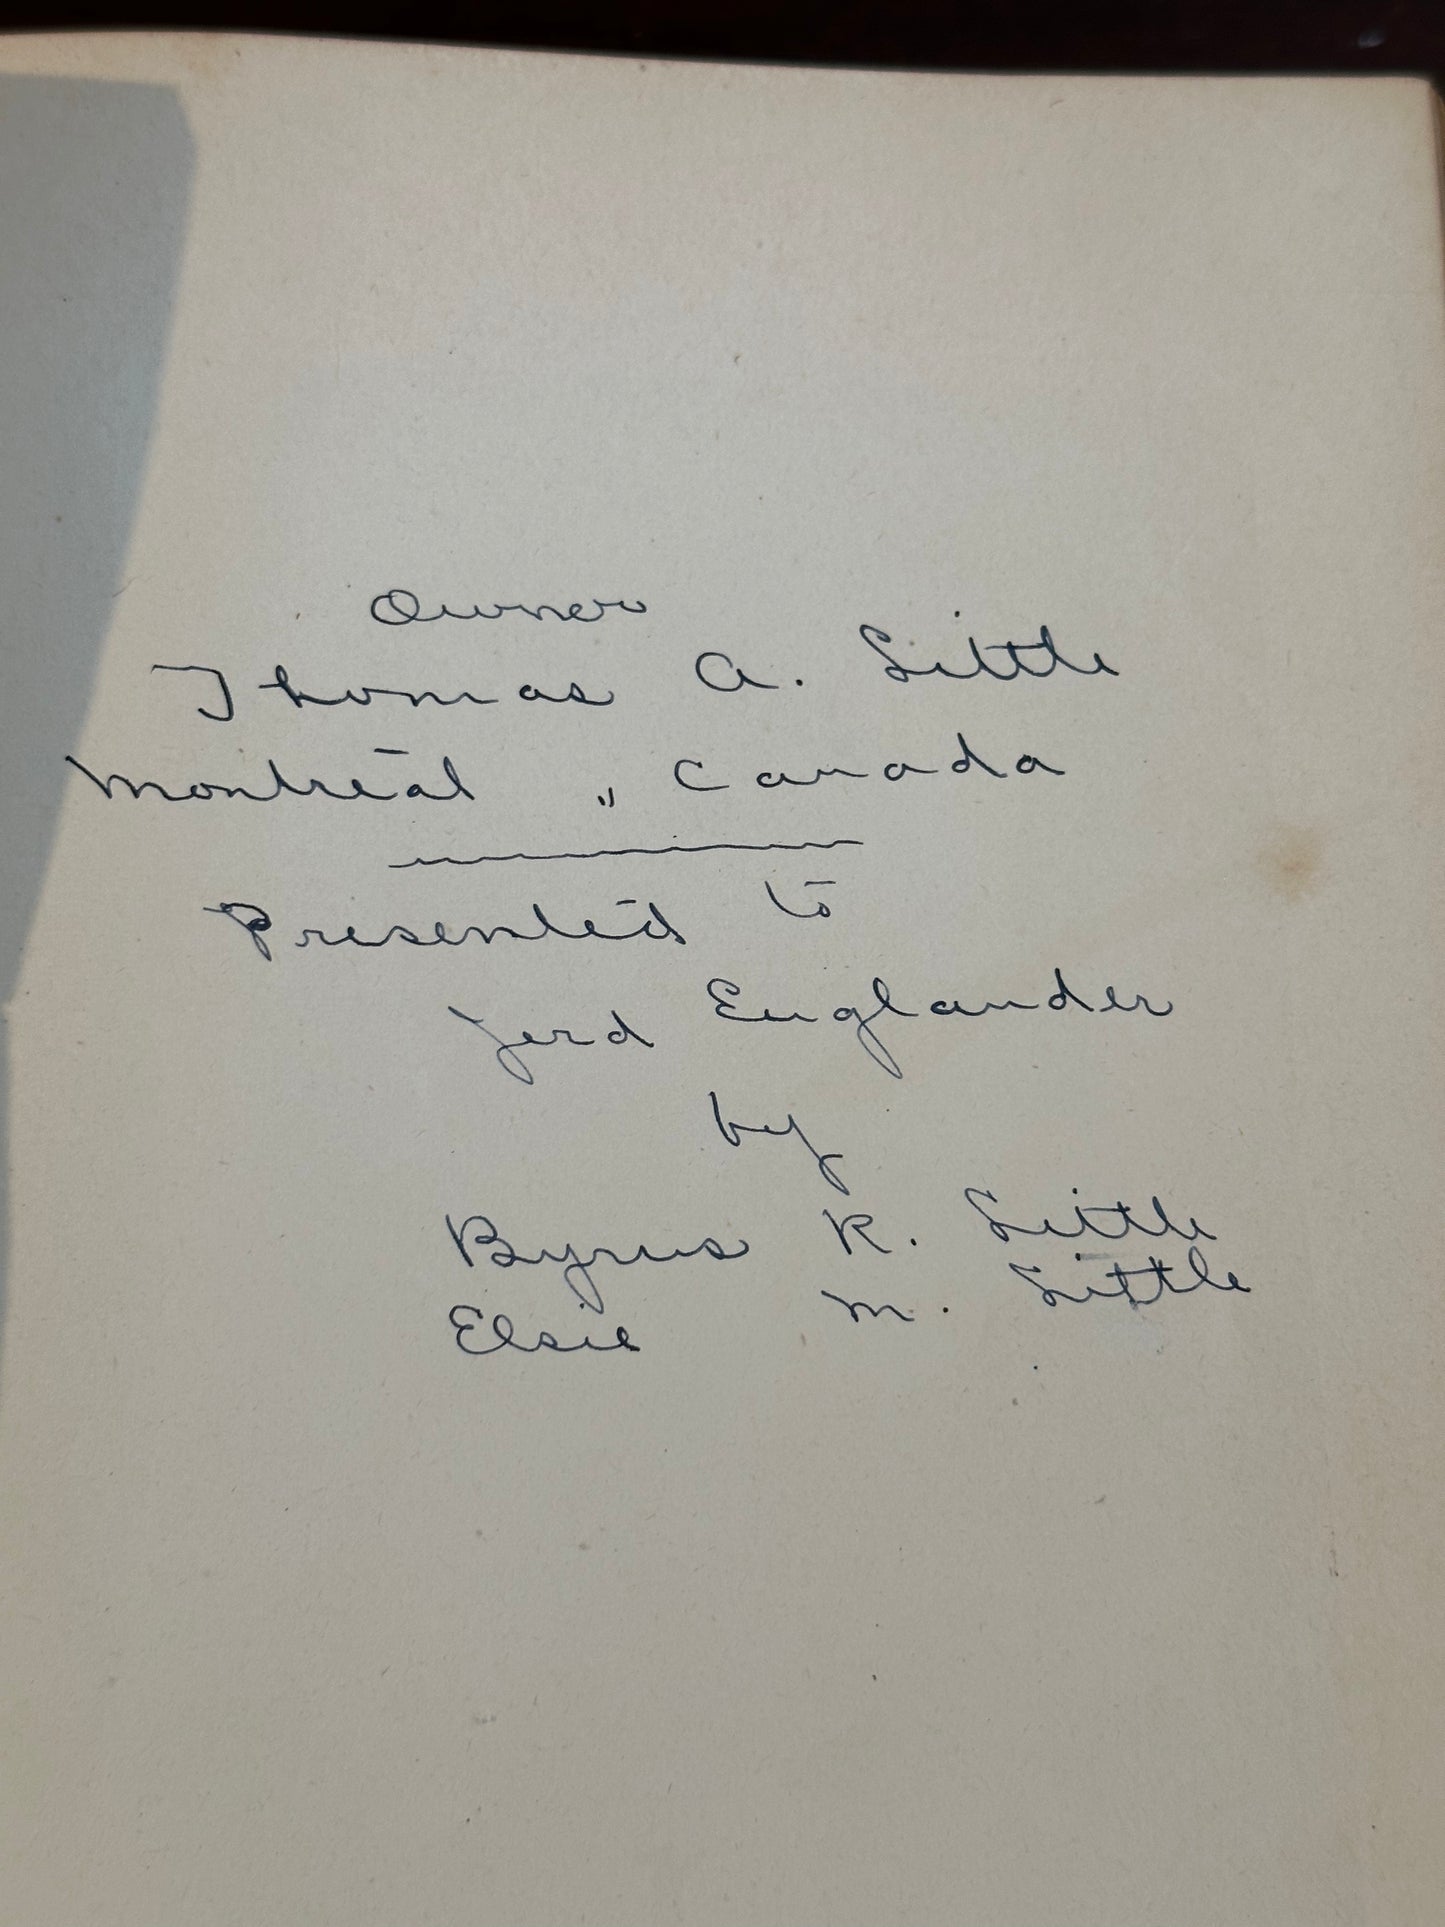 Owner
Thomas A. Little
Montreal ,, Canada
Presented to
Jerd Englander
by
Byrus R. Little
Elsie M. Little